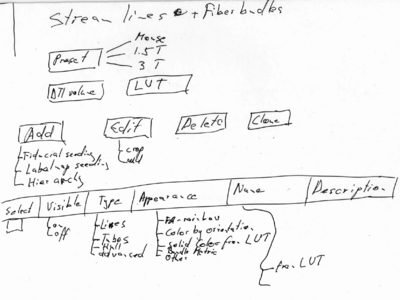 Stream lines + Fiber bundles
Mouse
Preset
1.5 T
3 T
DTI volume
LUT
Add
Edit
Delete
Clone
Fiducial seeding
crop
Labelmap seeding
Hierarchy
Select
Visible
Type
Appearance
Name
Description
on
off
Lines
Tubes
Hull
advanced
FA-rainbow
Color by orientation
Solid Color from LUT
Bundle Metric
Other
from LUT